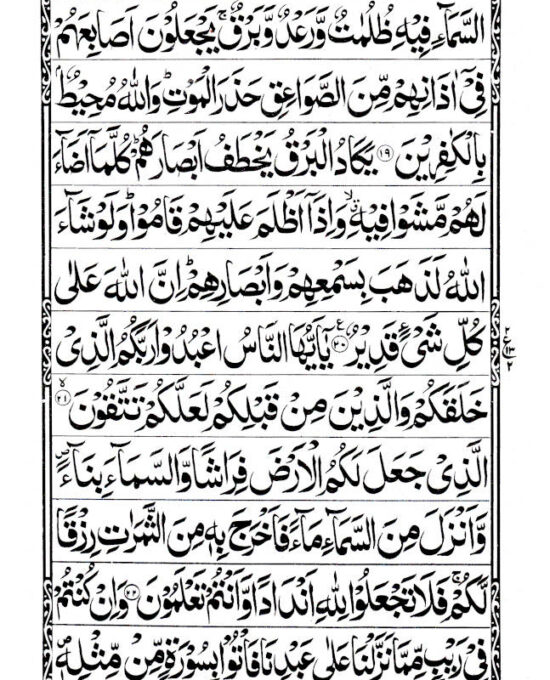 السَّمَآءِ فِيْهِ ظُلُمٰتٌ وَّرَعْدٌ وَّبَرْقٌ ۚ يَجْعَلُوْنَ اَصَابِعَهُمْ
فِيْۤ اٰذَانِهِمْ مِّنَ الصَّوَاعِقِ حَذَرَ الْمَوْتِ ؕ وَاللّٰهُ مُحِيْطٌۢ
بِالْكٰفِرِيْنَ ۝۱۹ يَكَادُ الْبَرْقُ يَخْطَفُ اَبْصَارَهُمْ ؕ كُلَّمَاۤ اَضَآءَ
لَهُمْ مَّشَوْا فِيْهِ ۙۗ وَاِذَاۤ اَظْلَمَ عَلَيْهِمْ قَامُوْا ؕ وَلَوْ شَآءَ
اللّٰهُ لَذَهَبَ بِسَمْعِهِمْ وَاَبْصَارِهِمْ ؕ اِنَّ اللّٰهَ عَلٰى
كُلِّ شَیْءٍ قَدِيْرٌ ۝۲۰ ع يٰۤاَيُّهَا النَّاسُ اعْبُدُوْا رَبَّكُمُ الَّذِىْ
خَلَقَكُمْ وَالَّذِيْنَ مِنْ قَبْلِكُمْ لَعَلَّكُمْ تَتَّقُوْنَ ۙ ۝۲۱
الَّذِىْ جَعَلَ لَكُمُ الْاَرْضَ فِرَاشًا وَّالسَّمَآءَ بِنَآءً ۪
وَّاَنْزَلَ مِنَ السَّمَآءِ مَآءً فَاَخْرَجَ بِهٖ مِنَ الثَّمَرٰتِ رِزْقًا
لَّكُمْ ۚ فَلَا تَجْعَلُوْا لِلّٰهِ اَنْدَادًا وَّاَنْتُمْ تَعْلَمُوْنَ ۝۲۲ وَاِنْ كُنْتُمْ
فِىْ رَيْبٍ مِّمَّا نَزَّلْنَا عَلٰى عَبْدِنَا فَاْتُوْا بِسُوْرَةٍ مِّنْ مِّثْلِهٖ ۪
۲
ع
۱۳
۲